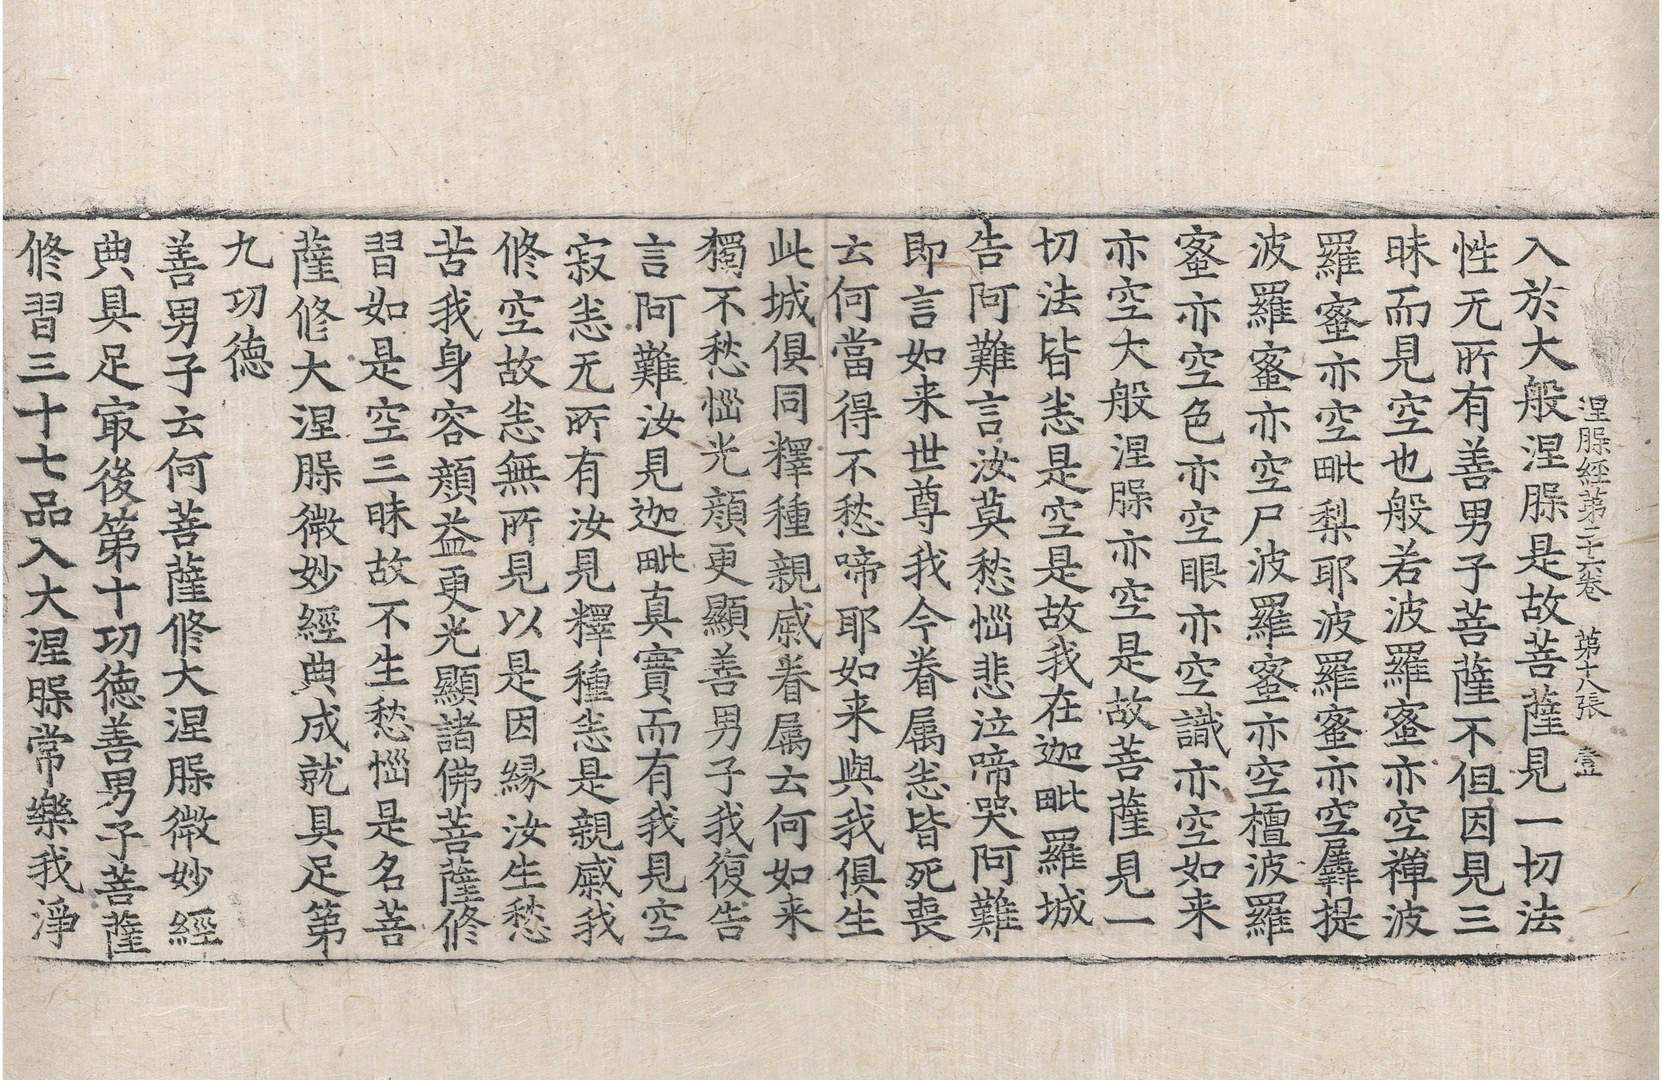 涅槃經第二十六卷　第十八張　壹
入於大般涅槃是故菩薩見一切法
性无所有善男子菩薩不但因見三
昧而見空也般若波羅蜜亦空禪波
羅蜜亦空毗梨耶波羅蜜亦空羼提
波羅蜜亦空尸波羅蜜亦空檀波羅
蜜亦空色亦空眼亦空識亦空如来
亦空大般涅槃亦空是故菩薩見一
切法皆悉是空是故我在迦毗羅城
告阿難言汝莫愁惱悲泣啼哭阿難
即言如来世尊我今眷属悉皆死喪
云何當得不愁啼耶如来與我俱生
此城俱同釋種親戚眷属云何如来
獨不愁惱光顔更顯善男子我復告
言阿難汝見迦毗真實而有我見空
寂悉无所有汝見釋種悉是親戚我
修空故悉無所見以是因緣汝生愁
苦我身容顔益更光顯諸佛菩薩修
習如是空三昧故不生愁惱是名菩
薩修大涅槃微妙經典成就具足第
九功德
善男子云何菩薩修大涅槃微妙經
典具足㝡後第十功德善男子菩薩
修習三十七品入大涅槃常樂我淨